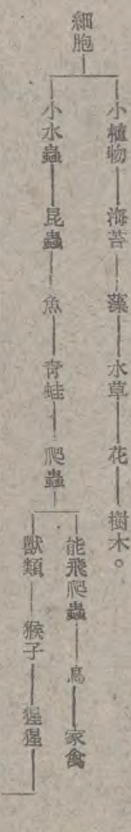 細胞
小植物——海苔——藻——水草——花——樹木。
小水蟲——昆蟲——魚——青蛙——爬蟲
能飛爬蟲——鳥——家禽
獸類——猴子——猩猩